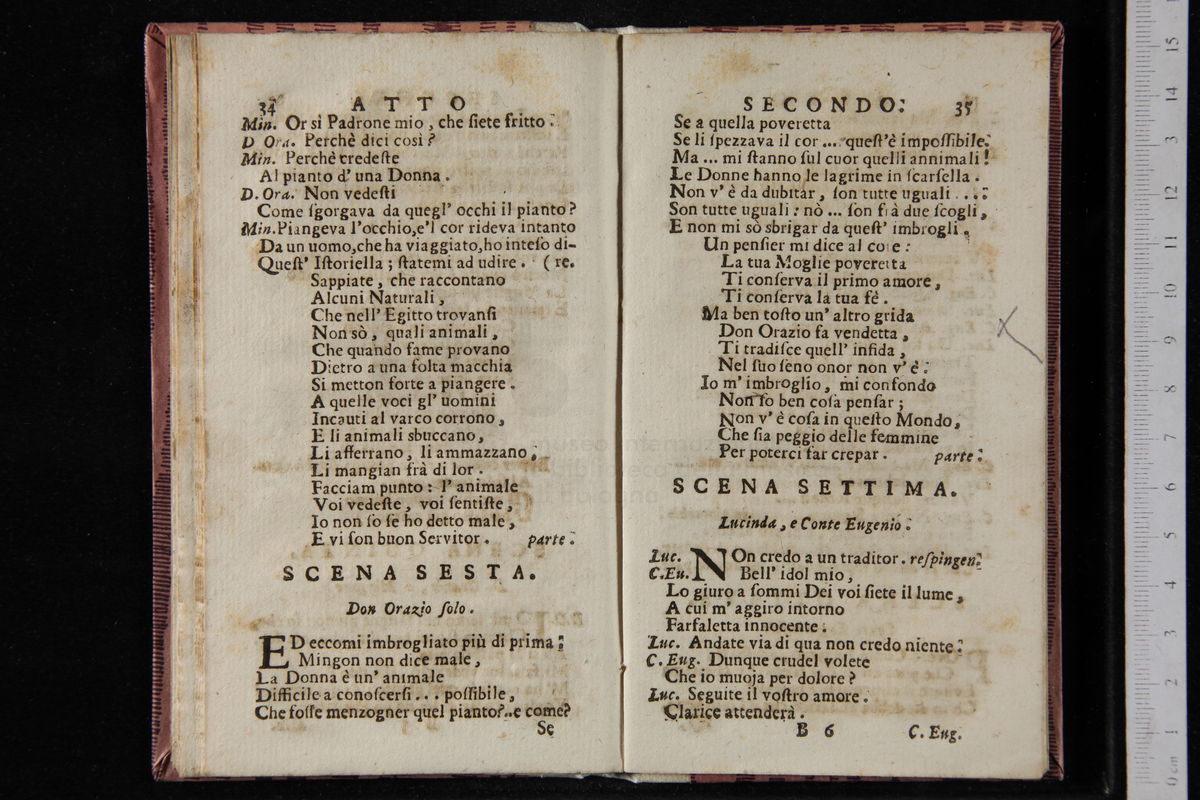 34 ATTO
Min. Or sì Padrone mio, che ſiete fritto.
D Ora. Perchè dici così?
Min. Perchè credeſte
Al pianto d' una Donna.
D. Ora. Non vedeſti
Come ſgorgava da quegl' occhi il pianto?
Min. Piangeva l'occhio, e'l cor rideva intanto
Da un uomo, che ha viaggiato, ho inteſo di-
Queſt' Iſtoriella; ſtatemi ad udire. (re.
Sappiate, che raccontano
Alcuni Naturali,
Che nell' Egitto trovanſi
Non sò, quali animali,
Che quando fame provano
Dietro a una folta macchia
Si metton forte a piangere.
A quelle voci gl' uomini
Incauti al varco corrono,
E li animali sbuccano,
Li afferrano, li ammazzano,
Li mangian frà di lor.
Facciam punto: l' animale
Voi vedeſte, voi ſentiſte,
Io non ſo ſe ho detto male,
E vi ſon buon Servitor. parte.
SCENA SESTA.
Don Orazio ſolo.
ED eccomi imbrogliato più di prima;
Mingon non dice male,
La Donna è un' animale
Difficile a conoſcerſi... poſſibile,
Che foſſe menzogner quel pianto?..e come?
Se
SECONDO. 35
Se a quella poveretta
Se li ſpezzava il cor.... queſt'è impoſſibile.
Ma... mi ſtanno ſul cuor quelli annimali!
Le Donne hanno le lagrime in ſcarſella.
Non v' è da dubitar, ſon tutte uguali....
Son tutte uguali: nò... ſon frà due ſcogli,
E non mi sò sbrigar da queſt' imbrogli.
Un penſier mi dice al core:
La tua Moglie poveretta
Ti conſerva il primo amore,
Ti conſerva la tua fè.
Ma ben toſto un' altro grida
Don Orazio fa vendetta,
Ti tradiſce quell' infida,
Nel ſuo ſeno onor non v' è.
Io m' imbroglio, mi confondo
Non ſo ben coſa penſar;
Non v' è coſa in queſto Mondo,
Che ſia peggio delle femmine
Per poterci far crepar. parte.
SCENA SETTIMA.
Lucinda, e Conte Eugenio.
Luc. NOn credo a un traditor. reſpingen.
C.Eu. Bell' idol mio,
Lo giuro a ſommi Dei voi ſiete il lume,
A cui m' aggiro intorno
Farfaletta innocente.
Luc. Andate via di qua non credo niente.
C. Eug. Dunque crudel volete
Che io muoja per dolore?
Luc. Seguite il voſtro amore.
Clarice attenderà.
B 6 C. Eug.
0 cm 1 2 3 4 5 6 7 8 9 10 11 12 13 14 15